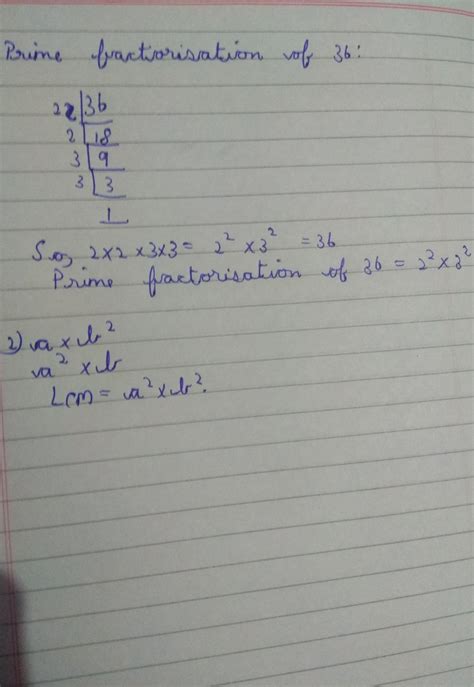 Prime fractorisation of 36:
2 2 | 36
2 | 18
3 | 9
3 | 3
1
So, 2×2×3×3 = 2² × 3² = 36
Prime fractorisation of 36 = 2² × 3²
2) a × b²
a² × b
LCM = a² × b².